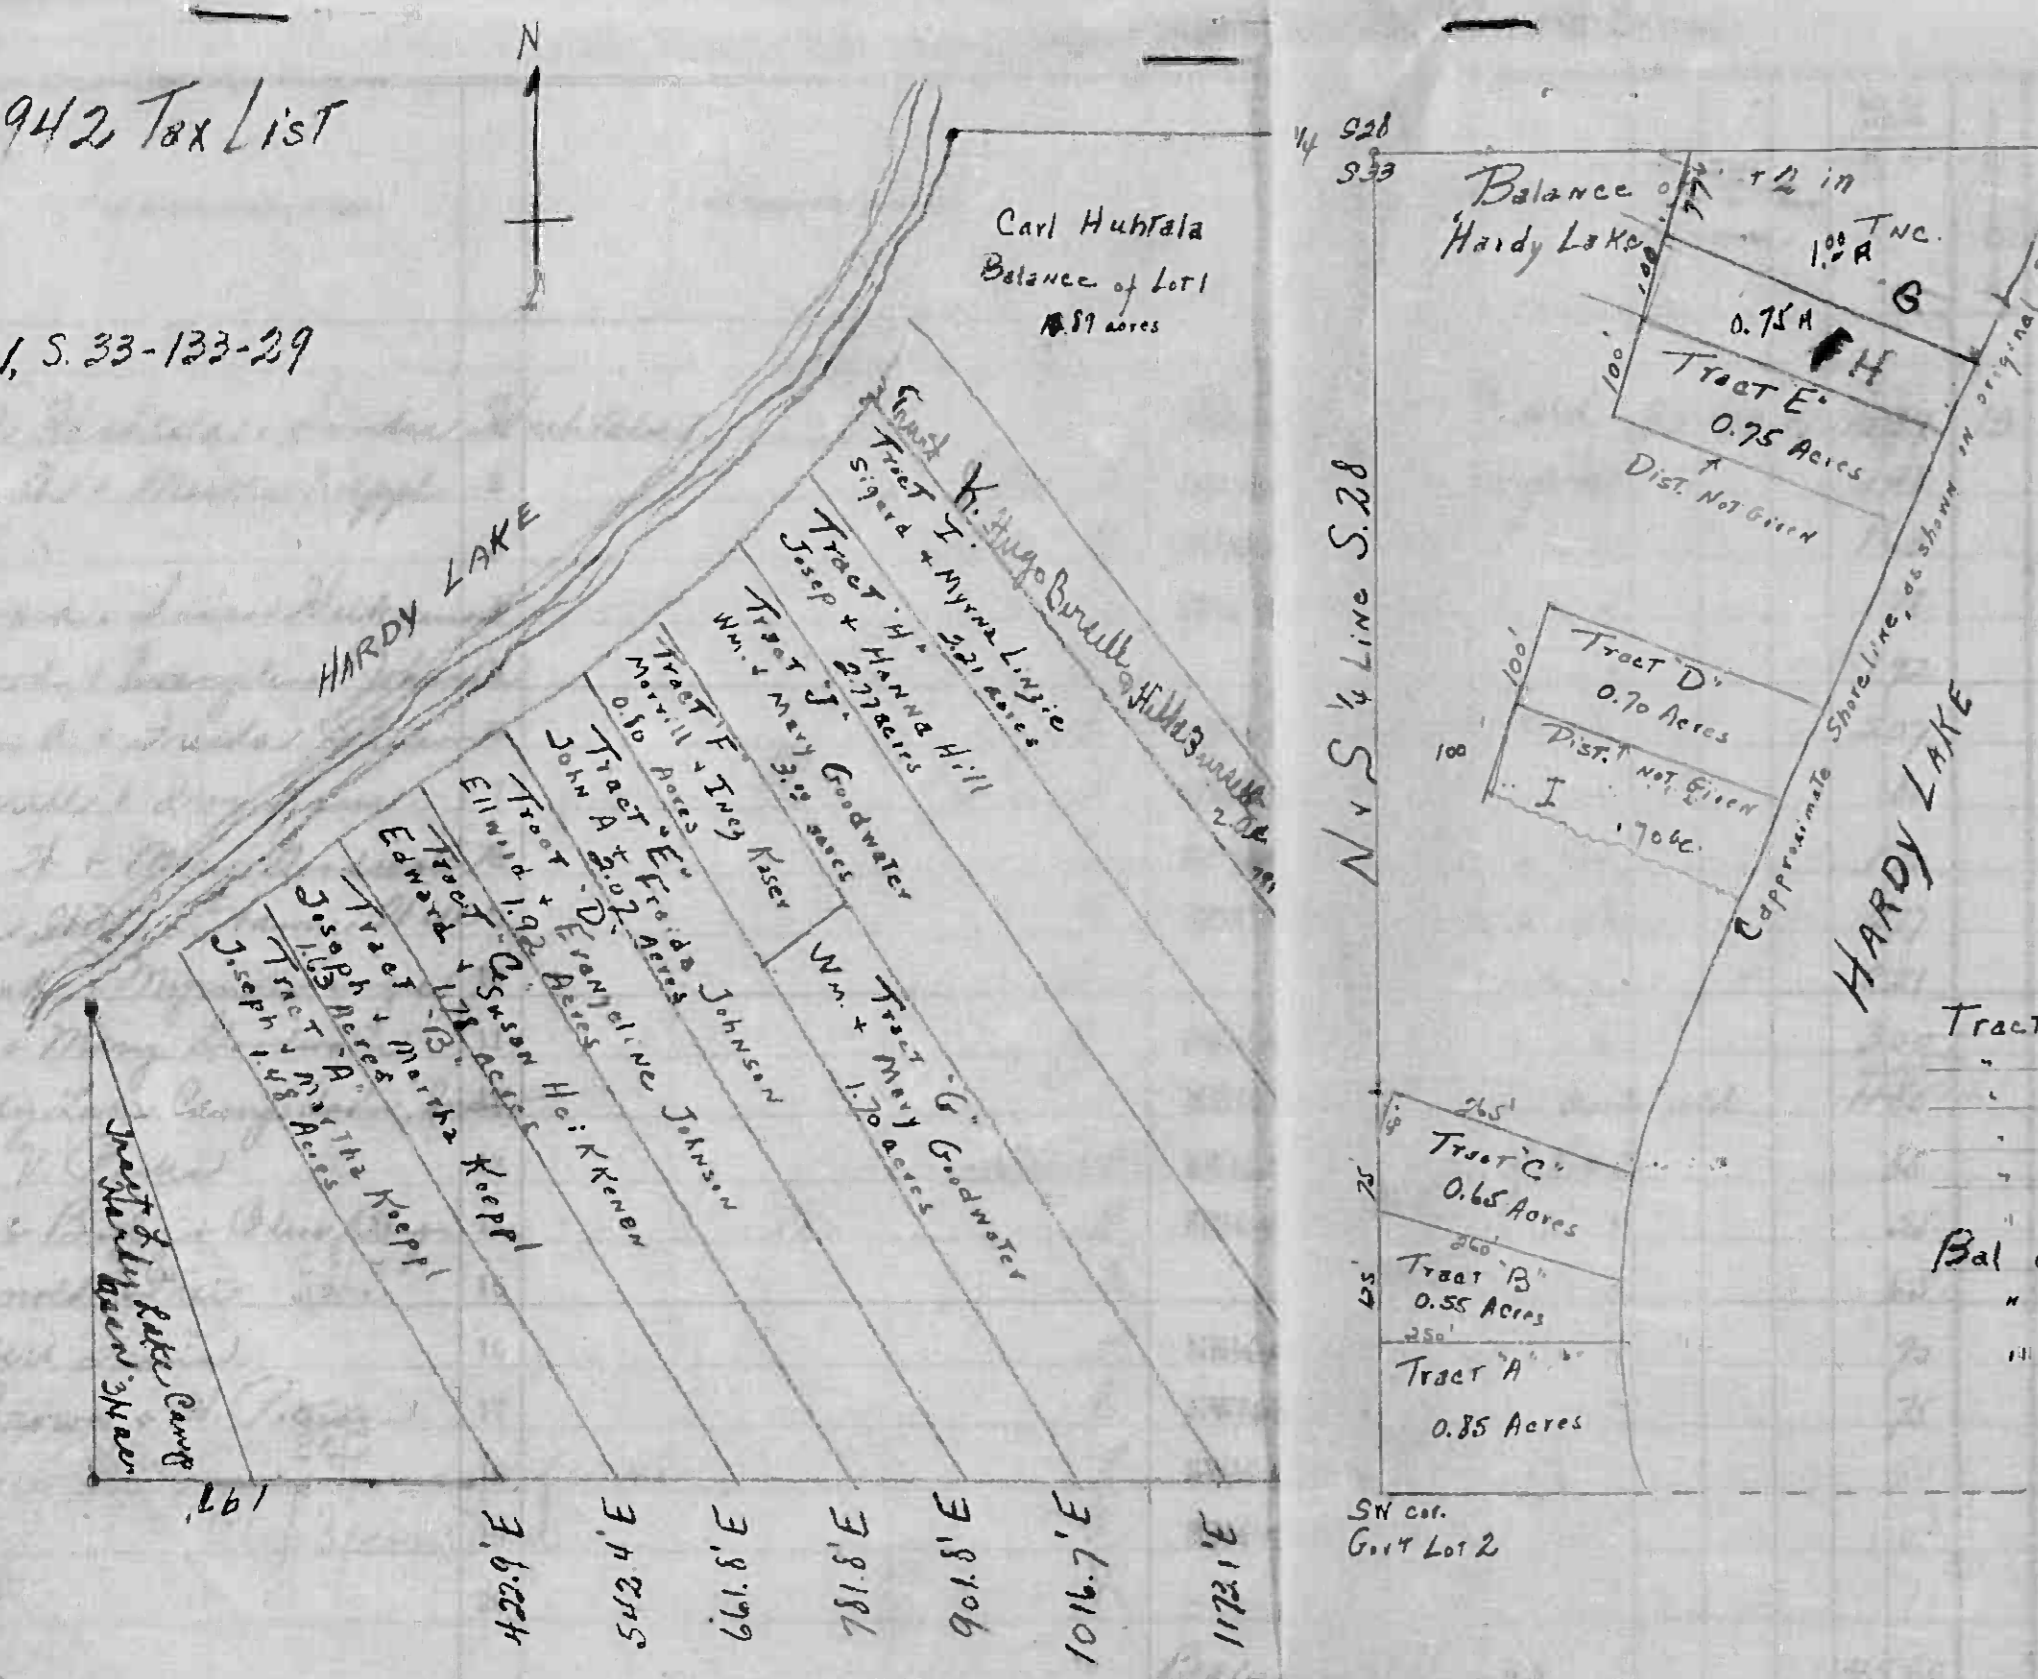 N
942 Tax List
1, S. 33-133-29
HARDY LAKE
Carl Huhtala
Balance of Lot 1
.89 acres
K. Hugo
Hilda
Tract I
Sigard + Myrna Linzie
2.21 acres
Tract "H"
Josep + Hanna Hill
2.77 acres
Tract J
Wm. + Mary Goodwater
acres
Tract "F"
Morrill + Inez Kaser
0.80 Acres
Tract "E"
John A + Froida Johnson
2.07 Acres
Tract "D"
Ellwild + Evangeline Johnson
1.92 Acres
Tract "C"
Edward + Susan HeiKKenen
1.78 acres
Tract "B"
Joseph + Martha Koeppl
1.63 Acres
Tract "A"
Joseph + Martha Koeppl
1.48 Acres
Tract "G"
Wm. + Mary Goodwater
1.70 acres
Tract L
Hardy Lake Camp
197
422.9' E
542.4' E
661.8' E
781.8' E
901.8' E
1016.7' E
1172.1' E
1/4 S28
S33
Balance of + 2 in
Hardy Lake Inc.
77
1.00 A
G
100'
0.75 A
H
100'
Tract E"
0.75 Acres
Dist. Not Given
N + S 1/4 Line S. 28
100'
Tract "D"
0.70 Acres
100'
Dist. Not Given
I
.70 ac.
approximate Shoreline, as shown in original
HARDY LAKE
265'
Tract "C"
0.65 Acres
75'
260'
Tract "B"
0.55 Acres
125'
250'
Tract "A"
0.85 Acres
SW cor.
Gov't Lot 2
Tract
"
"
"
"
"
Bal
"
"